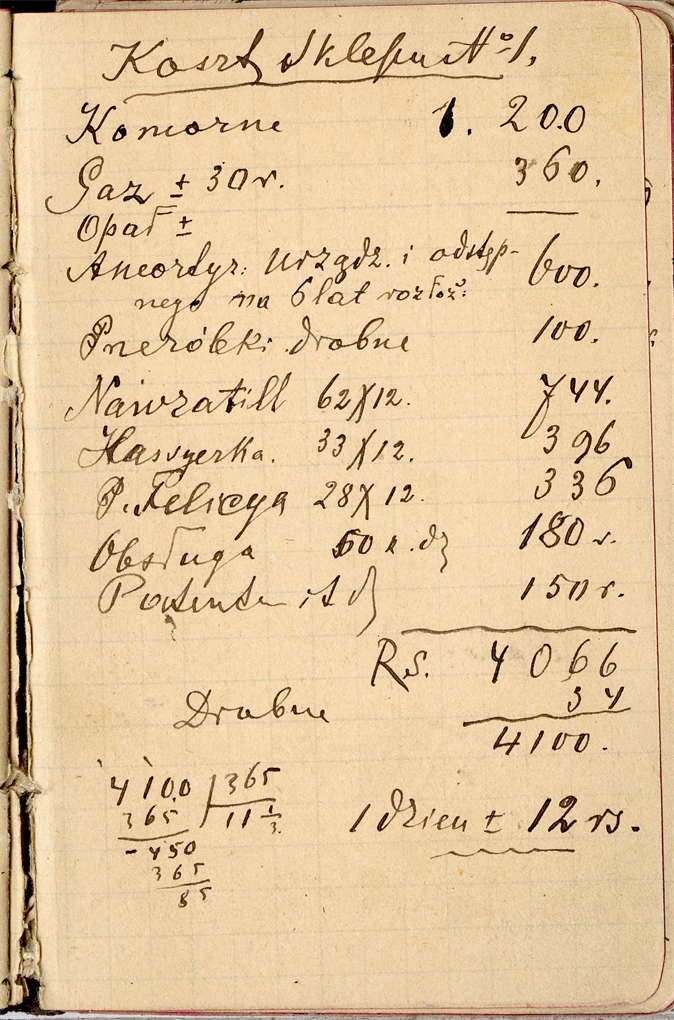 Koszt Sklepu № 1.
Komorne 1. 200
Gaz ± 30 r. 360.
Opał ± —
Amortyz: urządz. i odstęp- 600.
nego na 6 lat rozłoż:
Przeróbki drobne 100.
Nawratill 62 X 12. 744.
Kassyerka. 33 X 12. 396
P. Felicya 28 X 12. 336
Obsługa 50 k. dz 180 r.
Patenta i t d 150 r.
Rs. 4066
Drobne 34
4100.
4100 | 365
365 11 1/3
- 450
365
85
1 dzien ± 12 rs.